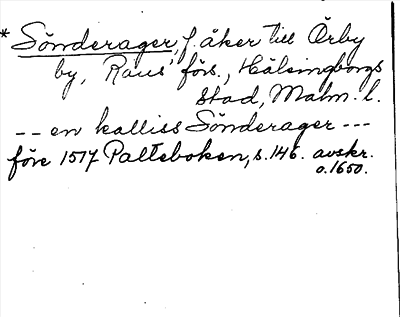 * Sönderager, f. åker till Örby
by, Raus förs., Hälsingborgs
stad, Malm. l.
-- en kalliss Sönderager ---
före 1517 Palteboken, s. 146. avskr.
o. 1650.